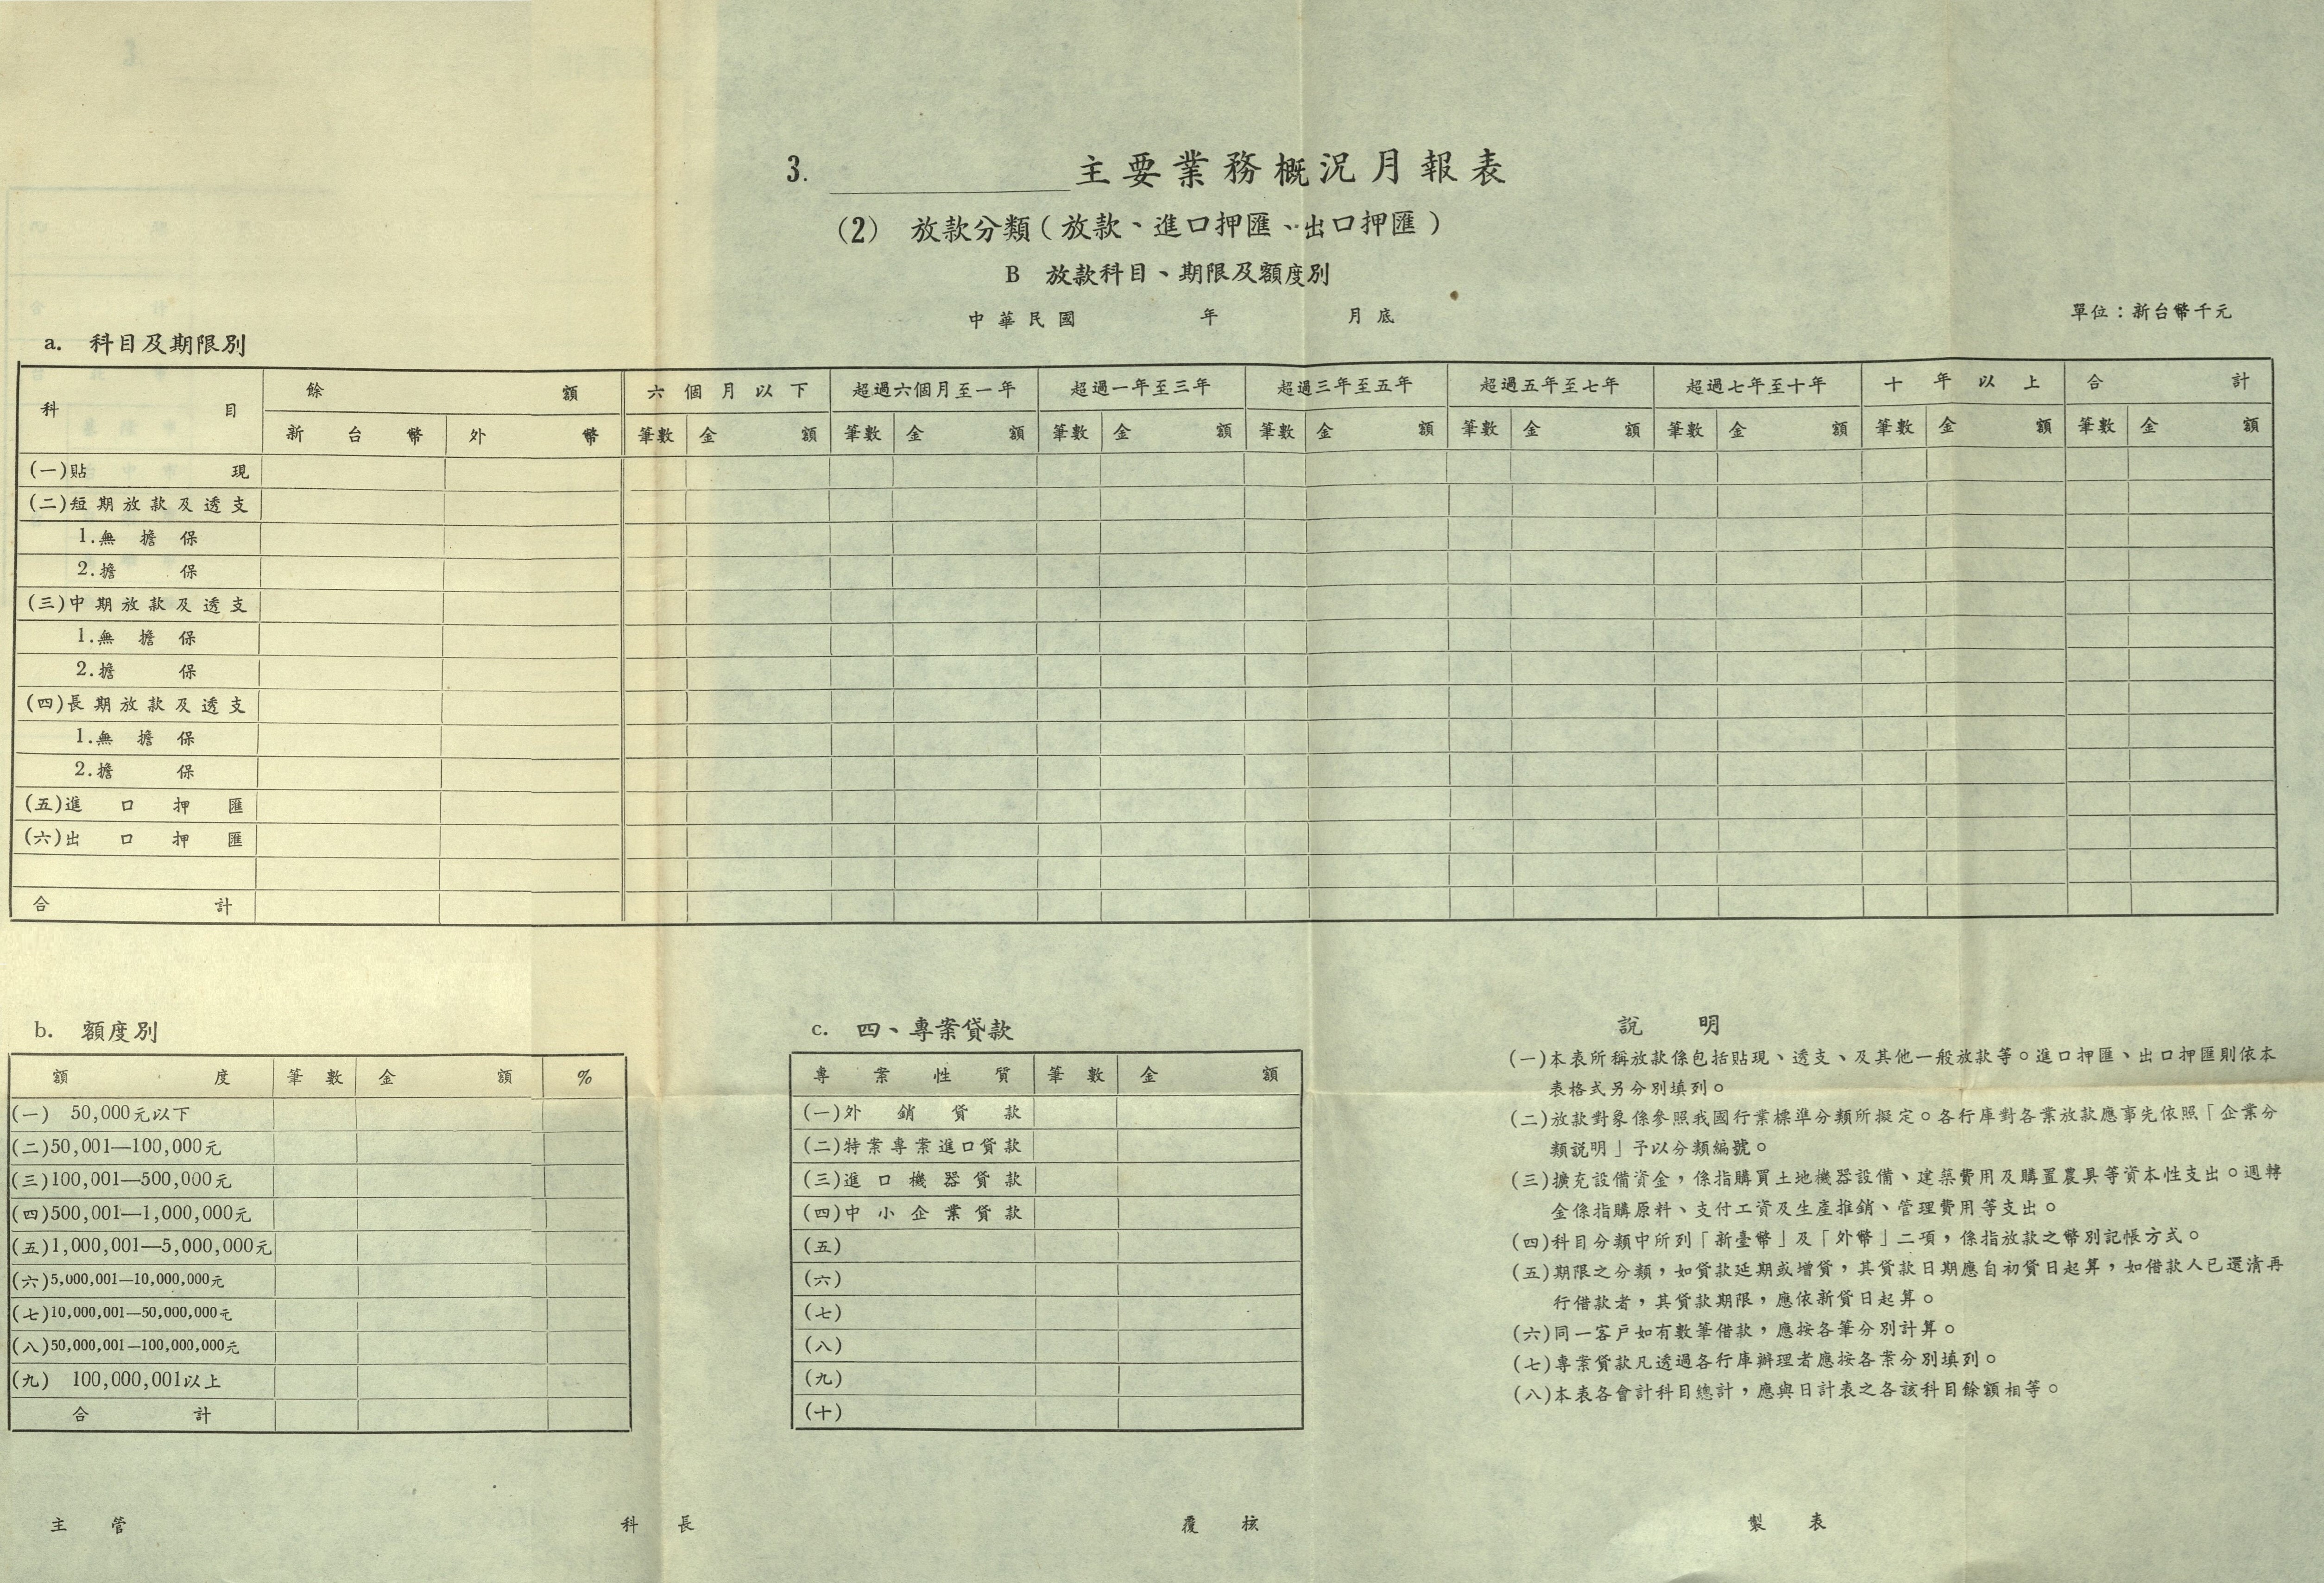 3. 主要業務概況月報表
(2) 放款分類(放款、進口押匯、出口押匯)
B 放款科目、期限及額度別
中華民國 年 月底
單位：新台幣千元
a. 科目及期限別
科目 餘額 六個月以下 超過六個月至一年 超過一年至三年 超過三年至五年 超過五年至七年 超過七年至十年 十年以上 合計
新台幣 外幣 筆數 金額 筆數 金額 筆數 金額 筆數 金額 筆數 金額 筆數 金額 筆數 金額 筆數 金額
(一)貼現
(二)短期放款及透支
1.無擔保
2.擔保
(三)中期放款及透支
1.無擔保
2.擔保
(四)長期放款及透支
1.無擔保
2.擔保
(五)進口押匯
(六)出口押匯
合計
b. 額度別
額度 筆數 金額 %
(一) 50,000元以下
(二)50,001—100,000元
(三)100,001—500,000元
(四)500,001—1,000,000元
(五)1,000,001—5,000,000元
(六)5,000,001—10,000,000元
(七)10,000,001—50,000,000元
(八)50,000,001—100,000,000元
(九) 100,000,001以上
合計
c. 四、專案貸款
專案性質 筆數 金額
(一)外銷貸款
(二)特案專案進口貸款
(三)進口機器貸款
(四)中小企業貸款
(五)
(六)
(七)
(八)
(九)
(十)
說明
(一)本表所稱放款係包括貼現、透支、及其他一般放款等。進口押匯、出口押匯則依本
表格式另分別填列。
(二)放款對象係參照我國行業標準分類所擬定。各行庫對各業放款應事先依照「企業分
類說明」予以分類編號。
(三)擴充設備資金，係指購買土地機器設備、建築費用及購置農具等資本性支出。週轉
金係指購原料、支付工資及生產推銷、管理費用等支出。
(四)科目分類中所列「新臺幣」及「外幣」二項，係指放款之幣別記帳方式。
(五)期限之分類，如貸款延期或增貸，其貸款日期應自初貸日起算，如借款人已還清再
行借款者，其貸款期限，應依新貸日起算。
(六)同一客戶如有數筆借款，應按各筆分別計算。
(七)專案貸款凡透過各行庫辦理者應按各案分別填列。
(八)本表各會計科目總計，應與日計表之各該科目餘額相等。
主管 科長 覆核 製表